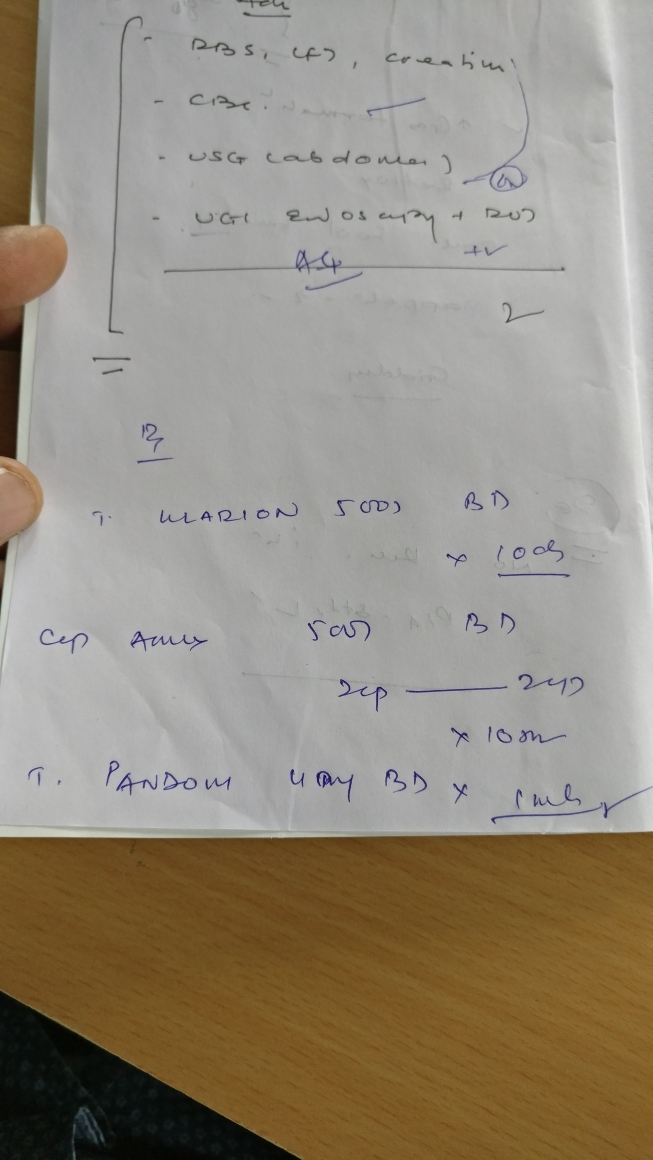 - RBS, LFT, creatinin
- CBC.
- USG (abdomen)
- UGI Endoscopy + RUT
+ve
2
Rx
T. KLARION 500 BD
x 10d
Cap Amox 500 BD
2cp — 2cp
x 10d
T. PANDOM 40mg BD x 1mth